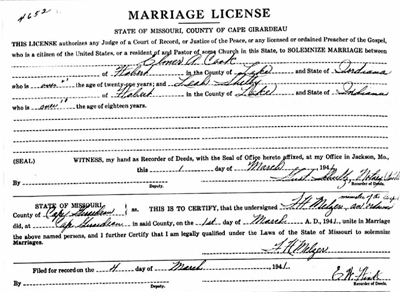 4652
MARRIAGE LICENSE
STATE OF MISSOURI, COUNTY OF CAPE GIRARDEAU
THIS LICENSE authorizes any Judge of a Court of Record, or Justice of the Peace, or any licensed or ordained Preacher of the Gospel,
who is a citizen of the United States, or a resident of and Pastor of some Church in this State, to SOLEMNIZE MARRIAGE between
Elmer A. Cook
of Hobart in the County of Lake and State of Indiana
who is over the age of twenty-one years; and Leah Shelby
of Hobart in the County of Lake and State of Indiana
who is over the age of eighteen years.
(SEAL) WITNESS, my hand as Recorder of Deeds, with the Seal of Office hereto affixed, at my Office in Jackson, Mo.,
this 1 day of March 1941
By Recorder of Deeds.
STATE OF MISSOURI,
County of Cape Girardeau ss. THIS IS TO CERTIFY, that the undersigned F. R. Melzer, minister of the Gospel
did, at Cape Girardeau in said County, on the 1st day of March A. D., 1941, unite in Marriage
the above named persons, and I further Certify that I am legally qualified under the Laws of the State of Missouri to solemnize
Marriages.
F. R. Melzer
Filed for record on the 4 day of March 1941.
By Recorder of Deeds.